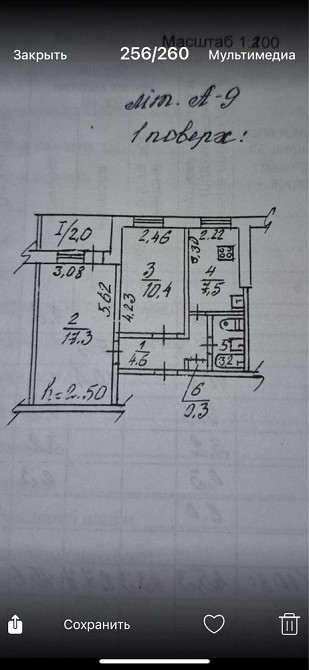 Масштаб 1:200
Закрыть 256/260 Мультимедиа
літ. А-9
1 поверх:
I/2,0
2,46
2.22
3,08
3,30
3
10,4
4
7,5
5,62
4,23
2
17,3
1
4,6
5
3,2
h=2.50
6
0,3
Сохранить